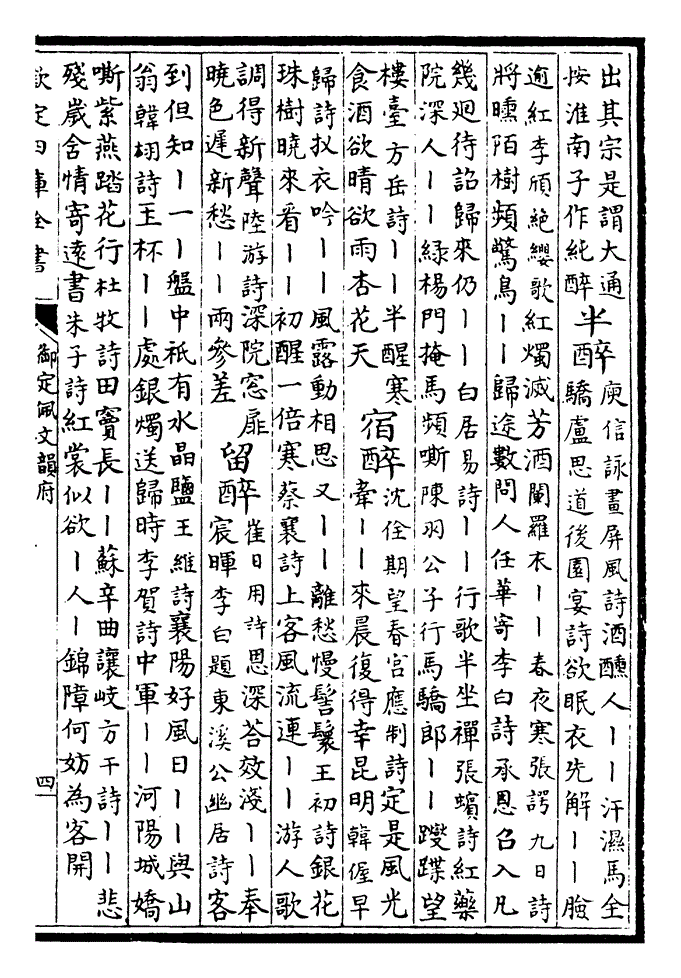 出其宗是謂大通
按淮南子作純醉
半醉
庾信詠畫屏風詩酒醺人丨丨汗濕馬全
驕盧思道後園宴詩欲眠衣先解丨丨臉
逾紅李頎絶纓歌紅燭滅芳酒闌羅衣丨丨春夜寒張諤九日詩
將曛陌樹頻驚鳥丨丨歸途數問人任華寄李白詩承恩召入凡
幾廻待詔歸來仍丨丨白居易詩丨丨行歌半坐禪張蠙詩紅藥
院深人丨丨緑楊門掩馬頻嘶陳羽公子行馬驕郎丨丨躞蹀望
樓臺方岳詩丨丨半醒寒
食酒欲晴欲雨杏花天
宿醉
沈佺期望春宫應制詩定是風光
牽丨丨來晨復得幸昆明韓偓早
歸詩扠衣吟丨丨風露動相思又丨丨離愁慢髻鬟王初詩銀花
珠樹曉來看丨丨初醒一倍寒蔡襄詩上客風流連丨丨游人歌
調得新聲陸游詩深院窓扉
曉色遲新愁丨丨兩參差
留醉
崔日用詩恩深答效淺丨丨奉
宸暉李白題東溪公幽居詩客
到但知丨一丨盤中祇有水晶鹽王維詩襄陽好風日丨丨與山
翁韓翃詩玉杯丨丨處銀燭送歸時李賀詩中軍丨丨河陽城嬌
嘶紫燕踏花行杜牧詩田竇長丨丨蘇辛曲讓岐方干詩丨丨悲
殘歲舍情寄遠書朱子詩紅裳似欲丨人丨錦障何妨為客開
欽定四庫全書
御定佩文韻府
四